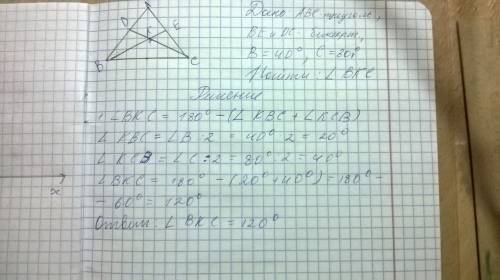 B
C
D
E
K
Дано: ABC треугольн.,
BE и DC - биссект.,
B = 40°, C = 80°
Найти: ∠ BKC
Решение
∠ BKC = 180° - (∠ KBC + ∠ KCB)
∠ KBC = ∠ B : 2 = 40° : 2 = 20°
∠ KCB = ∠ C : 2 = 80° : 2 = 40°
∠ BKC = 180° - (20° + 40°) = 180° -
- 60° = 120°
Ответ: ∠ BKC = 120°
x